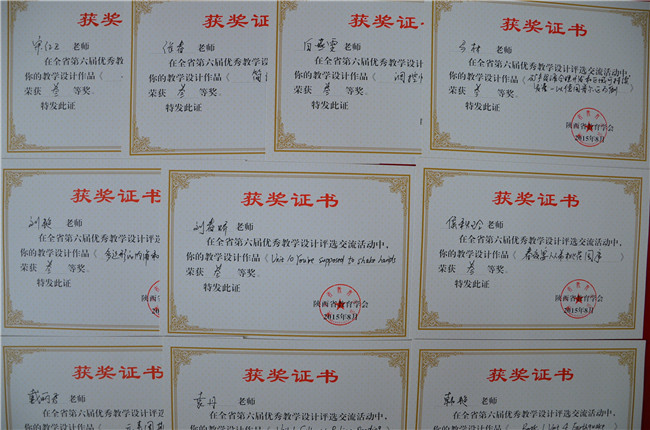 获奖证
老师
在全省第六届优秀教学设计
你的教学设计作品（
荣获 叁 等奖。
特发此证
获奖证
老师
在全省第六届优秀教学设
你的教学设计作品（ 简
荣获 叁 等奖。
特发此证
获奖证
老师
在全省第六届优秀教学设计评
你的教学设计作品（
荣获 叁 等奖。
特发此证
获奖证书
老师
在全省第六届优秀教学设计评选交流活动中，
你的教学设计作品（
荣获 叁 等奖。
特发此证
陕西省教育学会
2015年8月
获奖证书
刘 老师
在全省第六届优秀教学设计评选
你的教学设计作品（
荣获 叁 等奖。
特发此证
获奖证书
刘春 老师
在全省第六届优秀教学设计评选交流活动中，
你的教学设计作品（Unit 10 You're supposed to shake hands
荣获 叁 等奖。
特发此证
陕西省教育学会
2015年8月
获奖证书
老师
在全省第六届优秀教学设计评选交流活动中，
你的教学设计作品（
荣获 叁 等奖。
特发此证
陕西省教育学会
2015年8月
获奖证书
老师
在全省第六届优秀教学设计评选
你的教学设计作品（
获奖证书
老师
在全省第六届优秀教学设计评选交流活动中，
你的教学设计作品（
获奖证书
老师
在全省第六届优秀教学设计评选交流活动中，
你的教学设计作品（